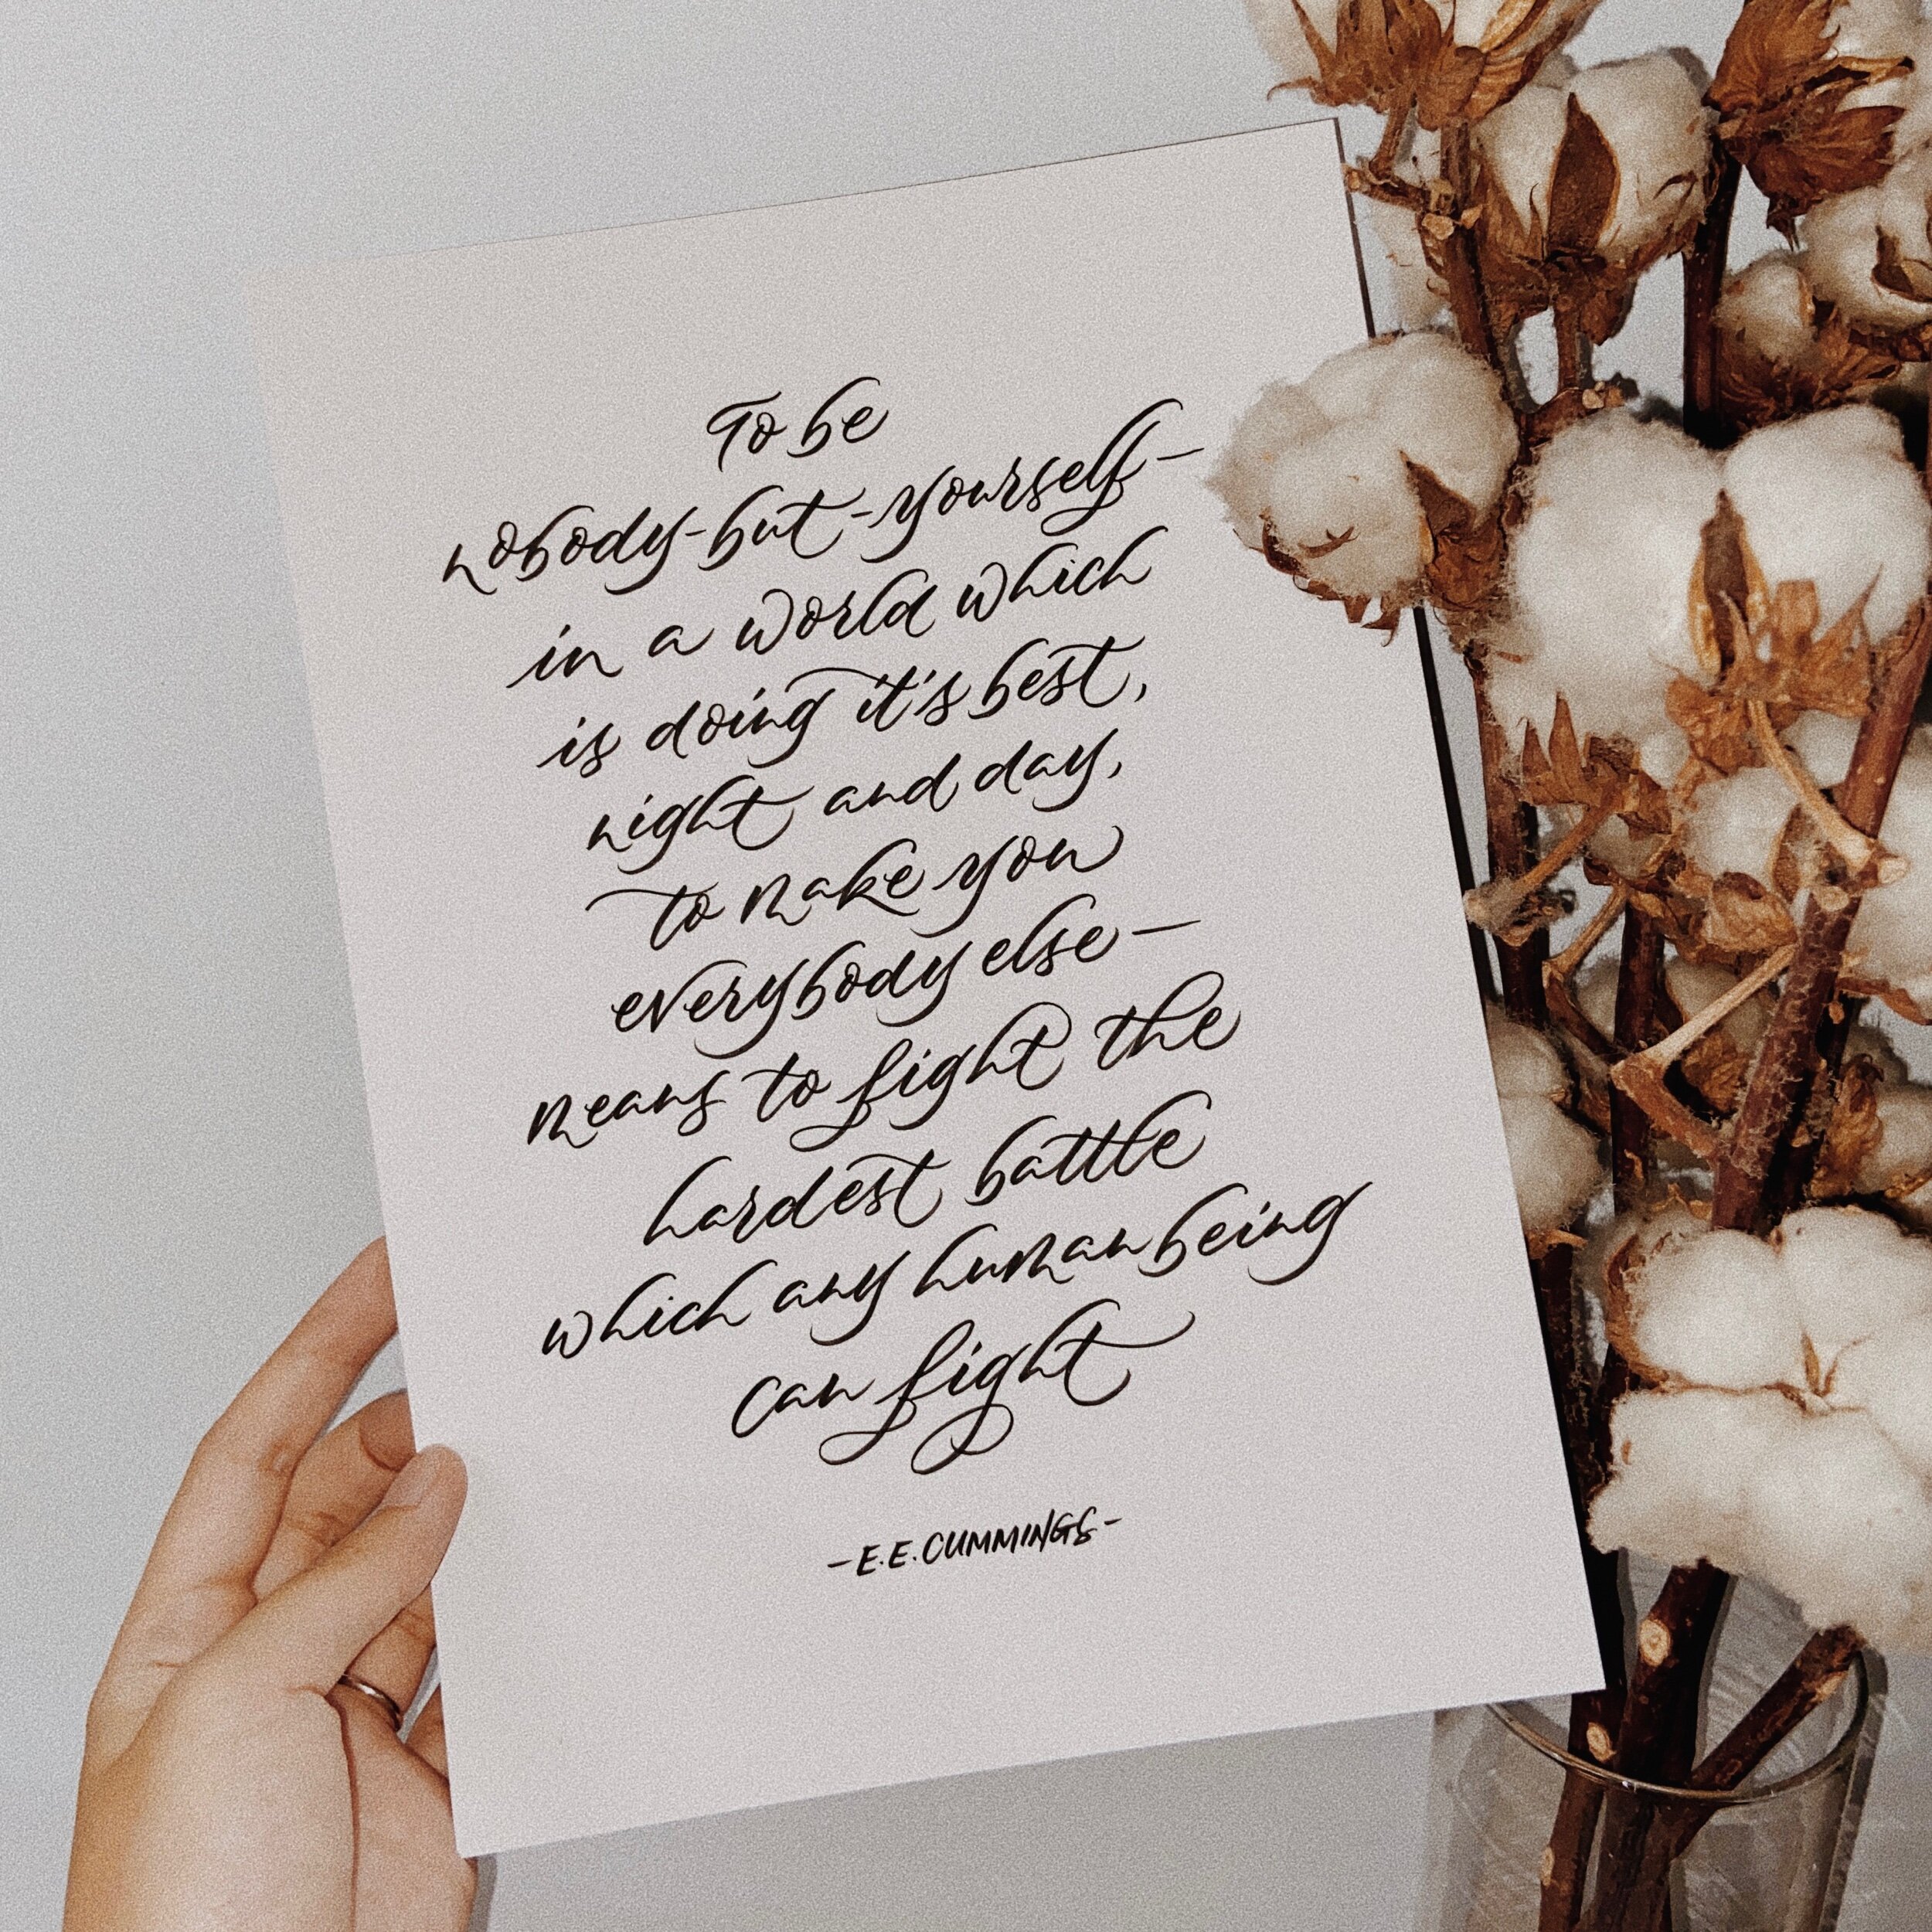 To be
nobody-but-yourself-
in a world which
is doing it's best,
night and day,
to make you
everybody else-
means to fight the
hardest battle
which any human being
can fight
-E.E. CUMMINGS-